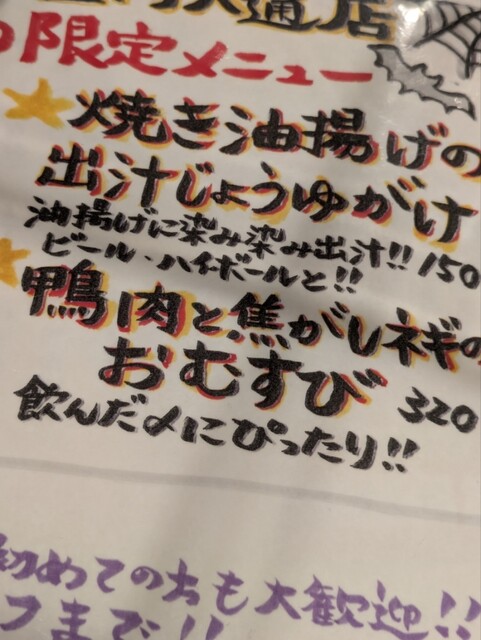 大通店
限定メニュー
焼き油揚げの
出汁じょうゆがけ
油揚げに染み染み出汁!! 150
ビール・ハイボールと!!
鴨肉と焦がしネギの
おむすび 320
飲んだ〆にぴったり!!
初めてのちも大歓迎!!
フまで!!